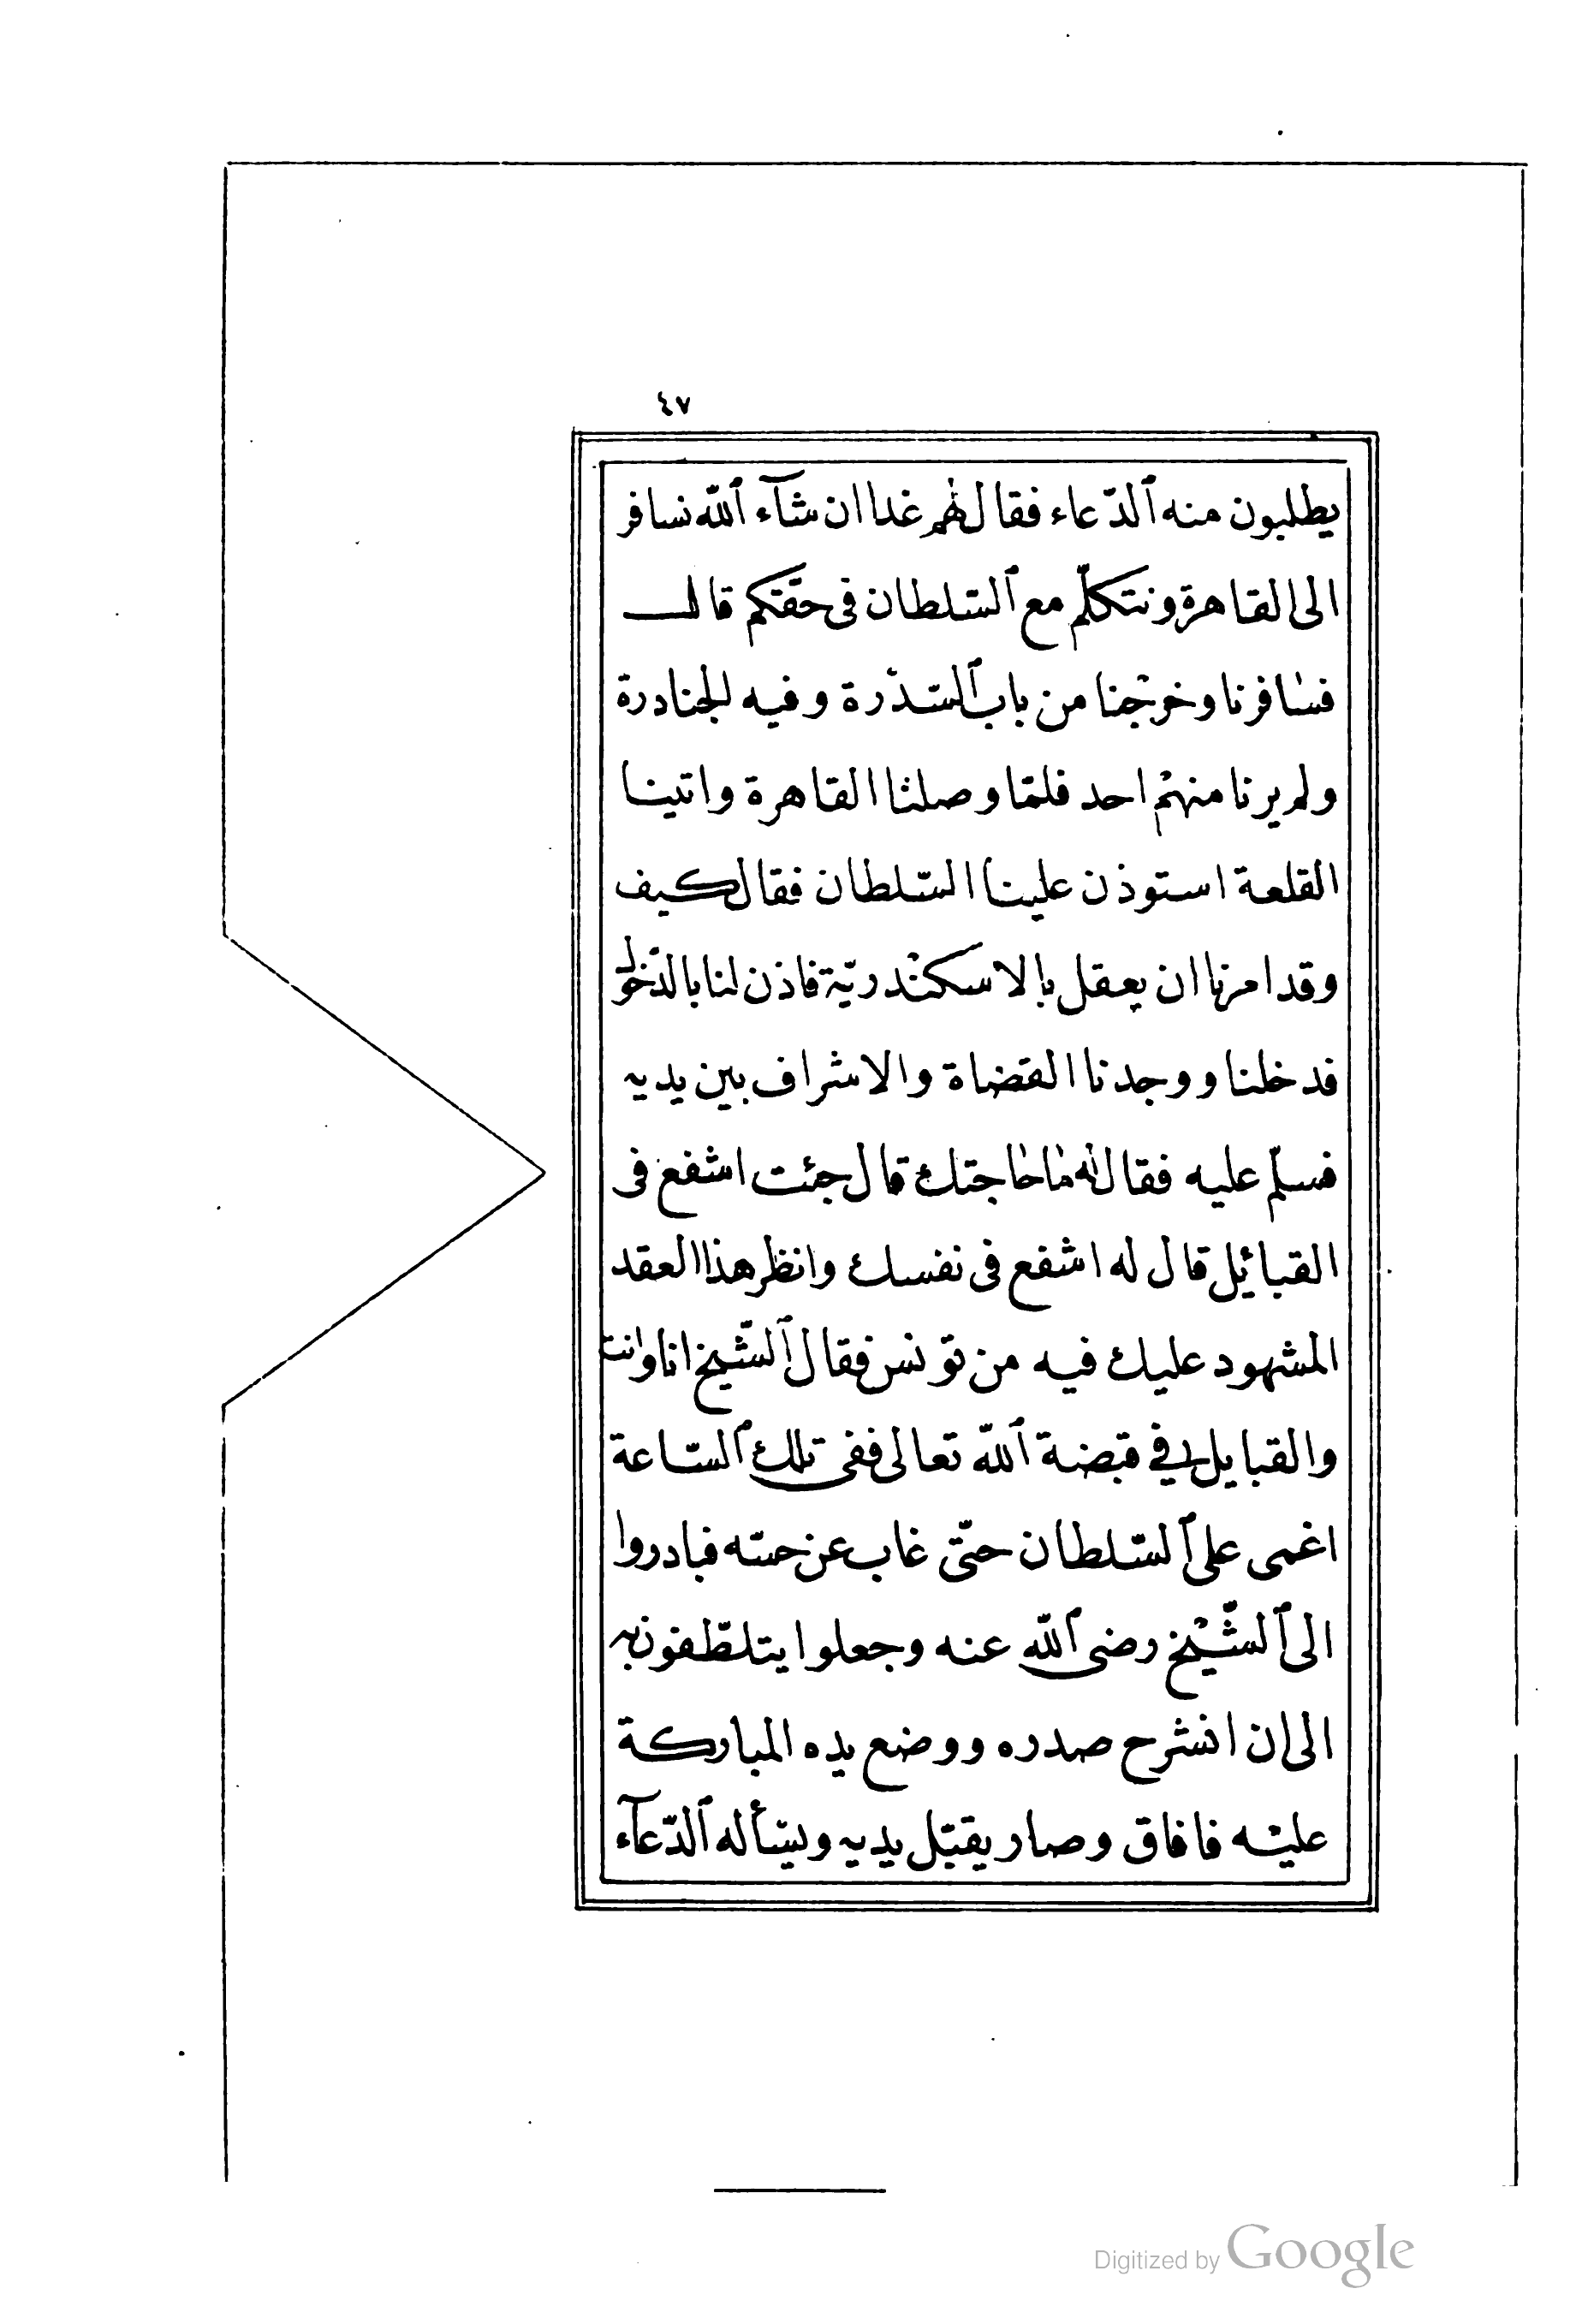 ٤٧
يطلبون منه ٱلدّعاء فقال لهم غدا ان شآء ٱللّه نسافر
الى القاهرة ونتكلّم مع ٱلسّلطان فى حقّكم قال
فسافرنا وخرجْنا من باب ٱلسّدْرة وفيه الجنادرة
ولم يرنا منهمْ احد فلمّا وصلنا القاهرة واتينا
القلعة استوذن علينا السّلطان فقال كيف
وقد امرنا ان يعقل بالاسكنْدريّة فاذن لنا بالدّخول
فدخلنا ووجدنا القضاة والاشراف بين يديه
فسلّم عليه فقال له ما حاجتك قال جئت اشفع فى
القبائيل قال له اشفع فى نفسك وانظر هذا العقد
المشهود عليك فيه من تونس فقال ٱلشّيخ انا وانت
والقبايل في قبضة ٱللّه تعالى ففى تلك ٱلسّاعة
اغمى على ٱلسّلطان حتّى غاب عن حسّه فبادروا
الى ٱلشّيْخ رضى ٱللّه عنه وجعلوا يتلطّفون به
الى ان انشرح صدره ووضع يده المباركة
عليْه فافاق وصار يقبّل يديه ويسْأله ٱلدّعآء
Digitized by Google